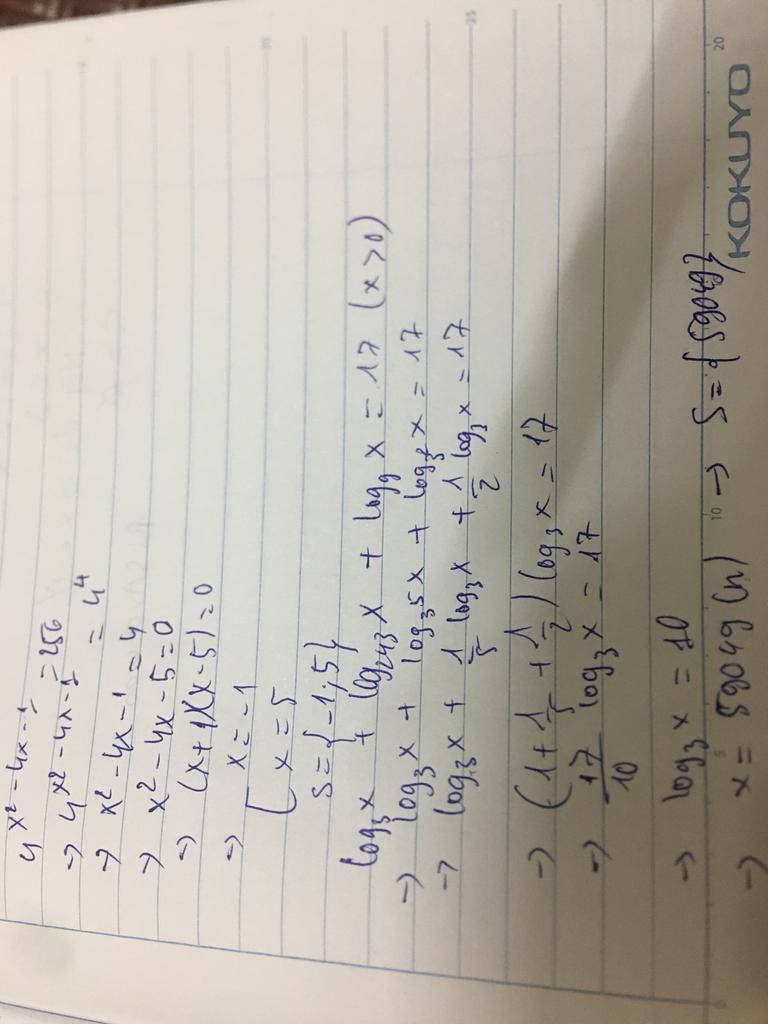 4^{x²-4x-1} = 256
→ 4^{x²-4x-1} = 4⁴
→ x²-4x-1 = 4
→ x²-4x-5=0
→ (x+1)(x-5)=0
→ [ x=-1
x=5
S={-1;5}
log₃x + log₂₄₃x + log₉x = 17 (x>0)
→ log₃x + log₃5x + log₃²x = 17
→ log₃x + 1/5 log₃x + 1/2 log₃x = 17
→ (1+1/5+1/2) log₃x = 17
→ 17/10 log₃x = 17
→ log₃x = 10
→ x = 59049 (n) → S={59049}
KOKUYO
5
10
20
25